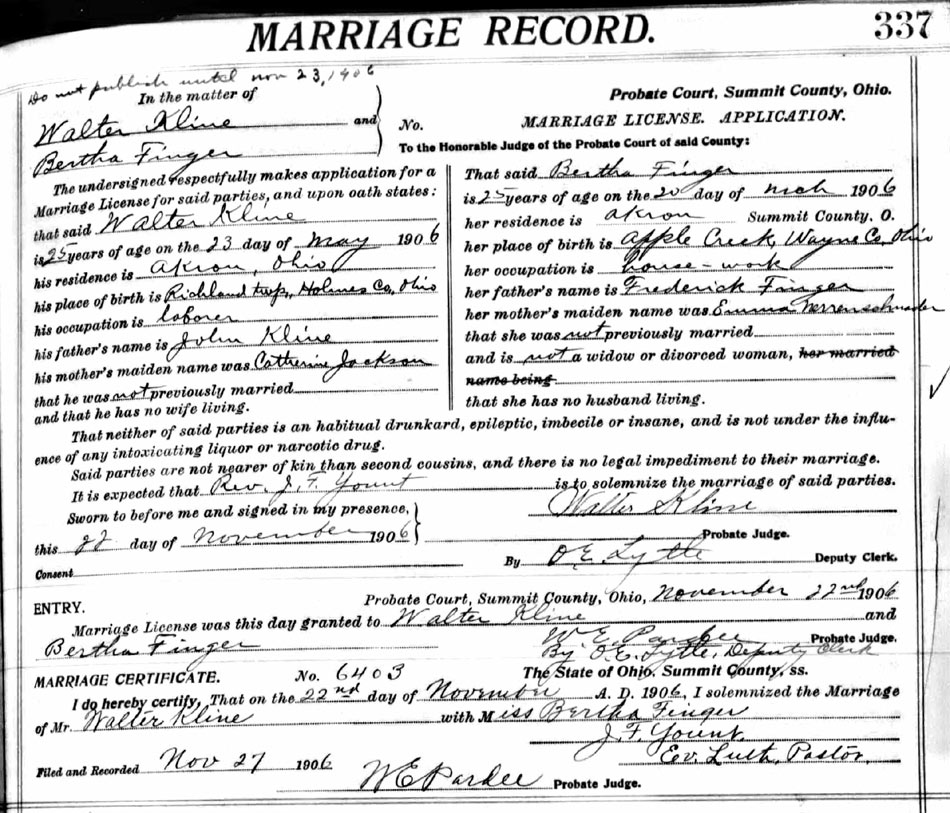 337
MARRIAGE RECORD.
Do not publish until nov 23, 1906
In the matter of
Walter Kline and
Bertha Finger
Probate Court, Summit County, Ohio.
No. MARRIAGE LICENSE. APPLICATION.
To the Honorable Judge of the Probate Court of said County:
The undersigned respectfully makes application for a
Marriage License for said parties, and upon oath states:
that said Walter Kline
is 25 years of age on the 23 day of May 1906
his residence is Akron, Ohio
his place of birth is Richland twp, Holmes Co, Ohio
his occupation is laborer
his father's name is John Kline
his mother's maiden name was Catherine Jackson
that he was not previously married
and that he has no wife living.
That said Bertha Finger
is 25 years of age on the 20 day of mch 1906
her residence is akron Summit County, O.
her place of birth is Apple Creek, Wayne Co, Ohio
her occupation is house-work
her father's name is Frederick Finger
her mother's maiden name was Emma
that she was not previously married
and is not a widow or divorced woman, her married
name being
that she has no husband living.
That neither of said parties is an habitual drunkard, epileptic, imbecile or insane, and is not under the influ-
ence of any intoxicating liquor or narcotic drug.
Said parties are not nearer of kin than second cousins, and there is no legal impediment to their marriage.
It is expected that Rev. J. F. Yount is to solemnize the marriage of said parties.
Sworn to before me and signed in my presence, Walter Kline
this 22 day of November 1906 Probate Judge.
By O.E. Lytle Deputy Clerk.
Consent
ENTRY. Probate Court, Summit County, Ohio, November 22nd 1906
Marriage License was this day granted to Walter Kline and
Bertha Finger W. E. Pardee Probate Judge.
By O.E. Lytle, Deputy Clerk
MARRIAGE CERTIFICATE. No. 6403 The State of Ohio, Summit County, ss.
I do hereby certify, That on the 22nd day of November A. D. 1906, I solemnized the Marriage
of Mr. Walter Kline with Miss Bertha Finger
J. F. Yount.
Ev. Luth. Pastor.
Filed and Recorded Nov 27 1906 W E Pardee Probate Judge.